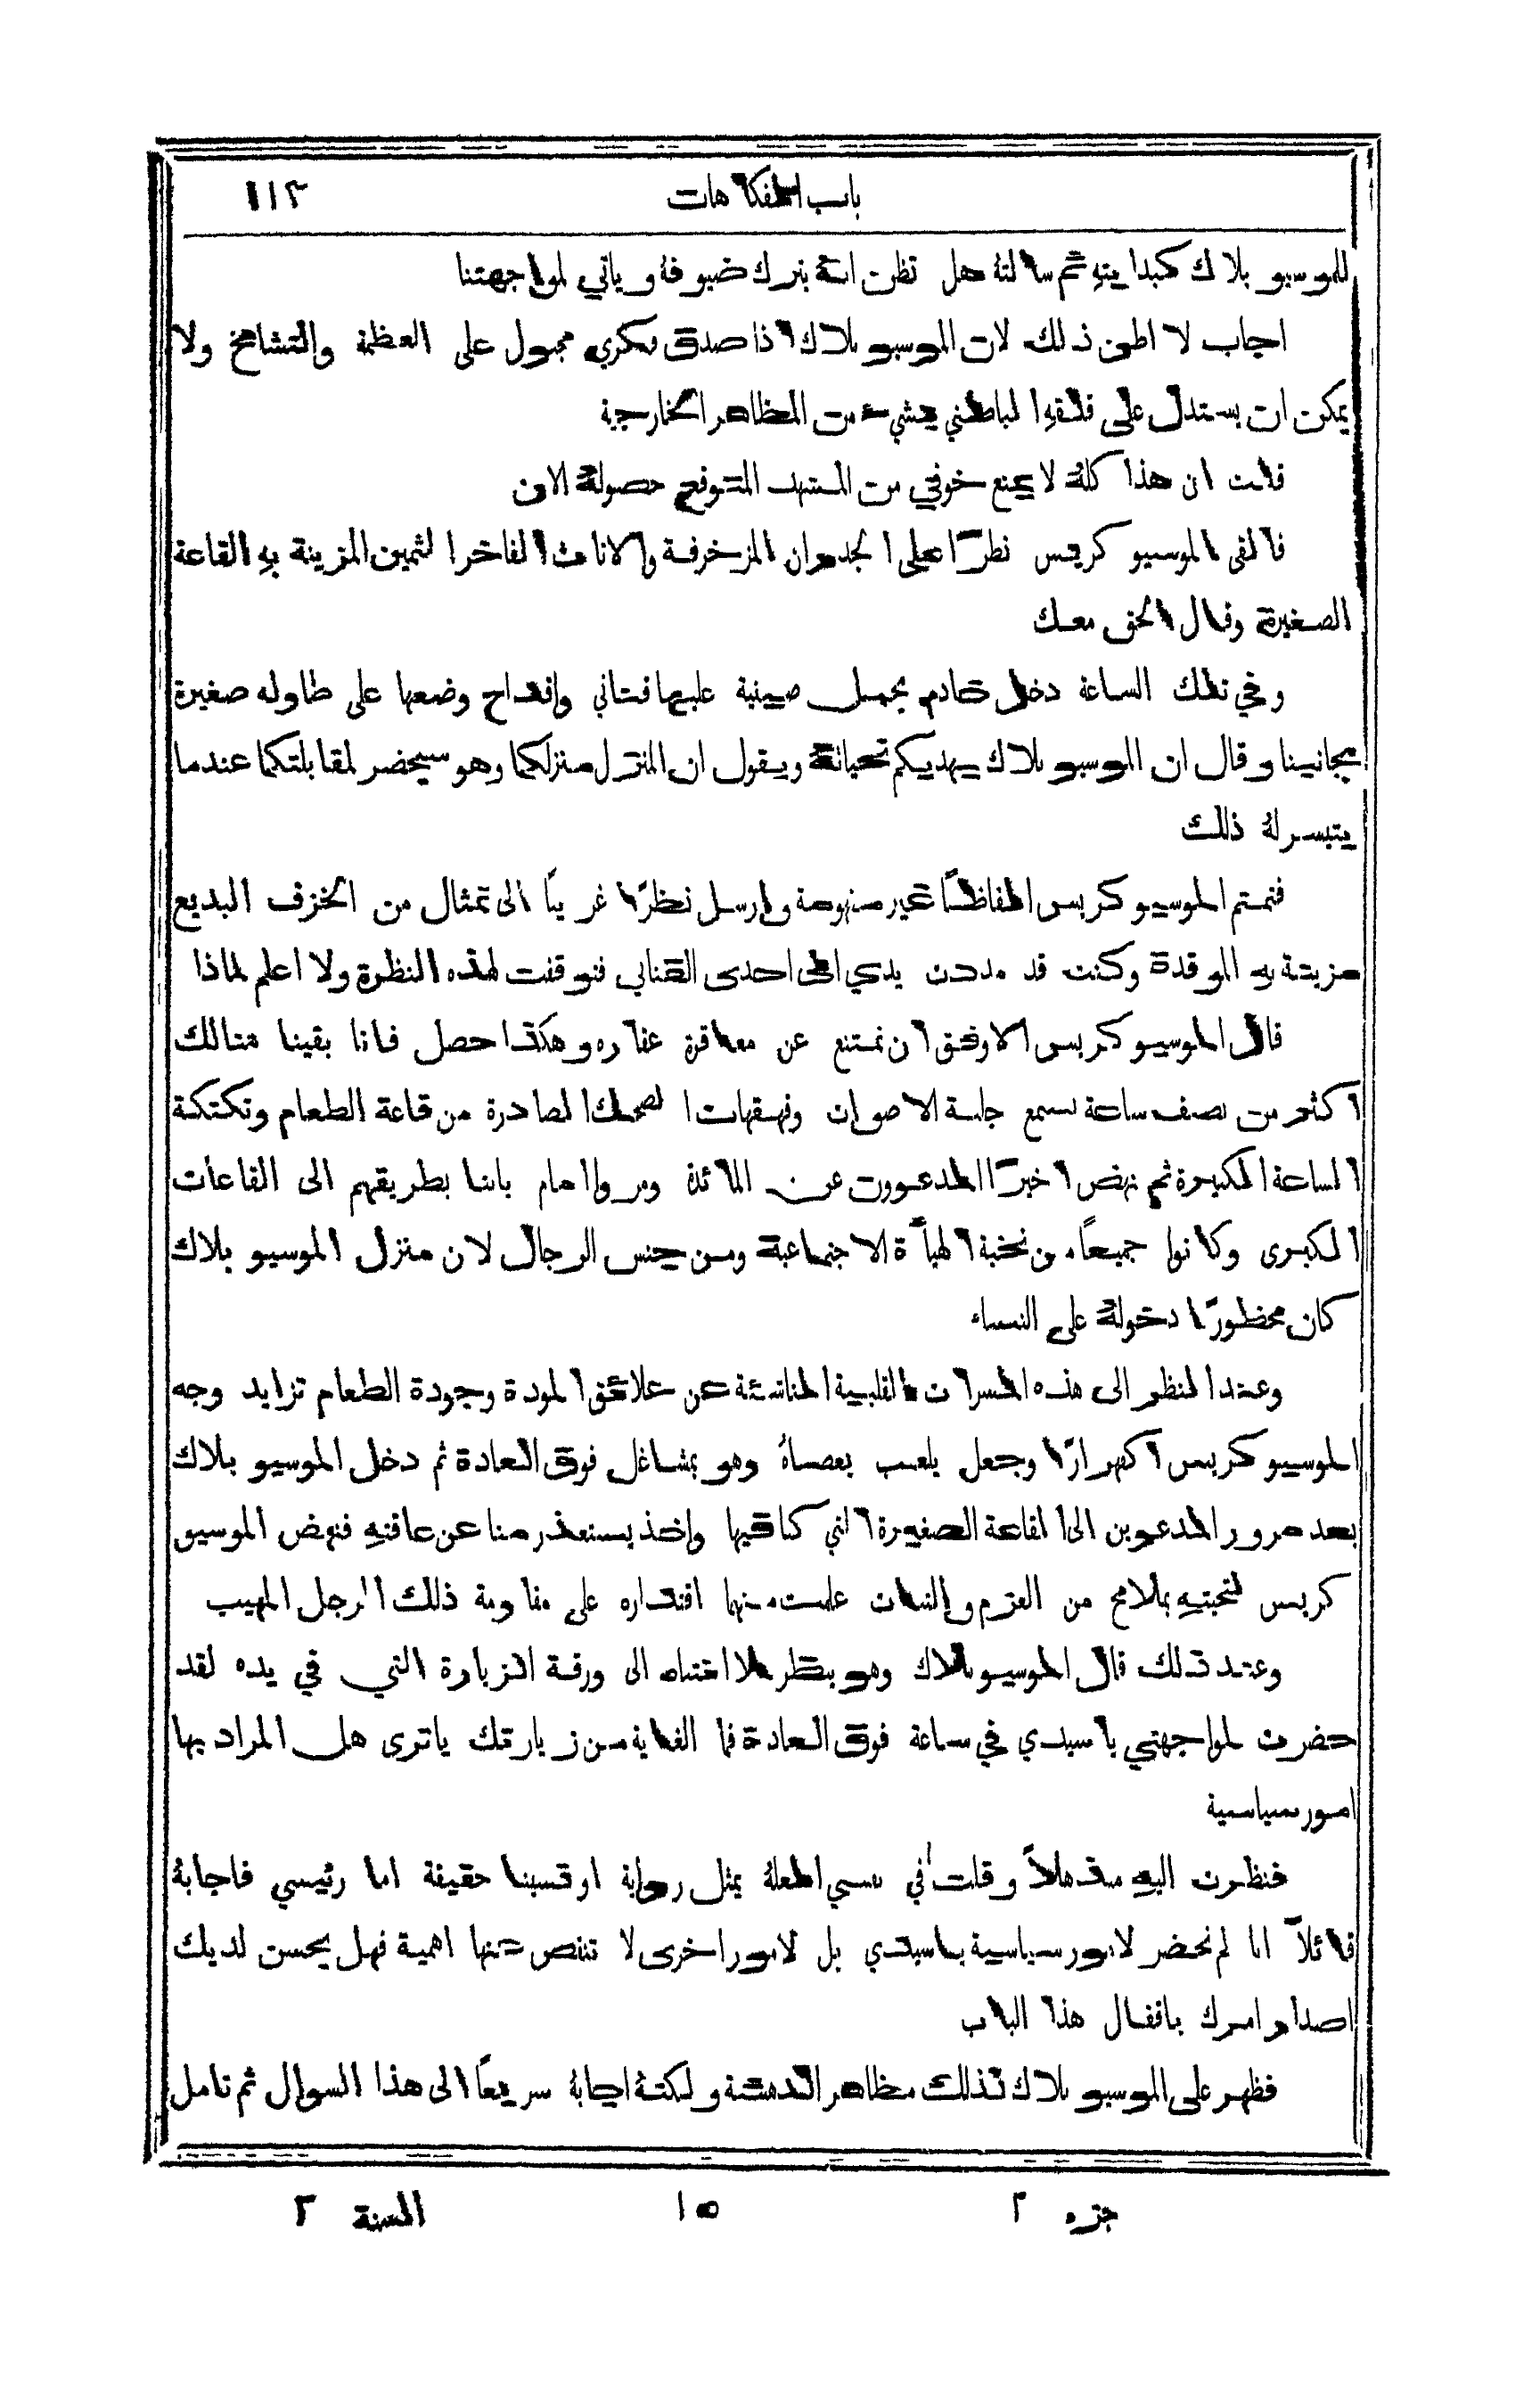 باب الفكاهات ١١٣
للموسيو بلاك كبدايته ثم سالته هل تظن انه يترك ضيوفه وياتي لمواجهتنا
اجاب لا اظن ذلك لان الموسيو بلاك اذا صدق فكري مجبول على العظمة والتشامخ ولا
يمكن ان يستدل على قلقهِ الباطني بشيء من المظاهر الخارجية
قلت ان هذا كلهُ لا يمنع خوفي من المشهد المتوقع حصولهُ الان
فالقى الموسيو كريس نظرًا على الجدران المزخرفة والاثاث الفاخر الثمين المزينة بهِ القاعة
الصغيرة وقال الحق معك
وفي تلك الساعة دخل خادم يحمل صينية عليها قناني واقداح وضعها على طاوله صغيرة
بجانبينا وقال ان الموسيو بلاك يهديكم تحياتهُ ويقول ان المنزل منزلكما وهو سيحضر لمقابلتكما عندما
يتيسر لهُ ذلك
فتمتم الموسيو كريس الفاظًا غير مفهومة وارسل نظرًا غريبًا الى تمثال من الخزف البديع
مزينة بهِ الموقدة وكنت قد مددت يدي الى احدى القناني فتوقفت لهذه النظرة ولا اعلم لماذا
قال الموسيو كريس الاوفق ان نمتنع عن معاقرة عقاره وهكذا حصل فاننا بقينا هنالك
اكثر من نصف ساعة نسمع جلبة الاصوات وقهقهات الضحك الصادرة من قاعة الطعام وتكتكة
الساعة الكبيرة ثم نهض اخيرًا المدعوون عن المائدة ومروا امام بابنا بطريقهم الى القاعات
الكبرى وكانوا جميعًا من نخبة الهيأة الاجتماعية ومن جنس الرجال لان منزل الموسيو بلاك
كان محظورًا دخولهُ على النساء
وعند النظر الى هذه المسرات القلبية الناشئة عن علائق المودة وجودة الطعام تزايد وجه
الموسيو كريس اكفهرارًا وجعل يلعب بعصاهُ وهو بمشاغل فوق العادة ثم دخل الموسيو بلاك
بعد مرور المدعوين الى القاعة الصغيرة التي كنا فيها واخذ يستعذر منا عن عاقتهِ فنهض الموسيو
كريس لتحيتهِ بملامح من العزم والثبات علمت منها اقتداره على مقاومة ذلك الرجل المهيب
وعند ذلك قال الموسيو بلاك وهو ينظر بلا اعتناء الى ورقة الزيارة التي في يده لقد
حضرت لمواجهتي يا سيدي في ساعة فوق العادة فما الغاية من زيارتك ياترى هل المراد بها
امور سياسية
فنظرت اليهِ مذهلاً وقلت في نفسي لعلهُ يمثل رواية او قسينا حقيقة اما رئيسي فاجابهُ
قائلاً انا لم نحضر لامور سياسية ياسيدي بل لامور اخرى لا تنقص عنها اهمية فهل يحسن لديك
اصدار امرك باقفال هذا الباب
فظهر على الموسيو بلاك لذلك مظاهر الدهشة ولكنهُ اجابهُ سريعًا الى هذا السوال ثم تامل
جزء ٢ ١٥ السنة ٢